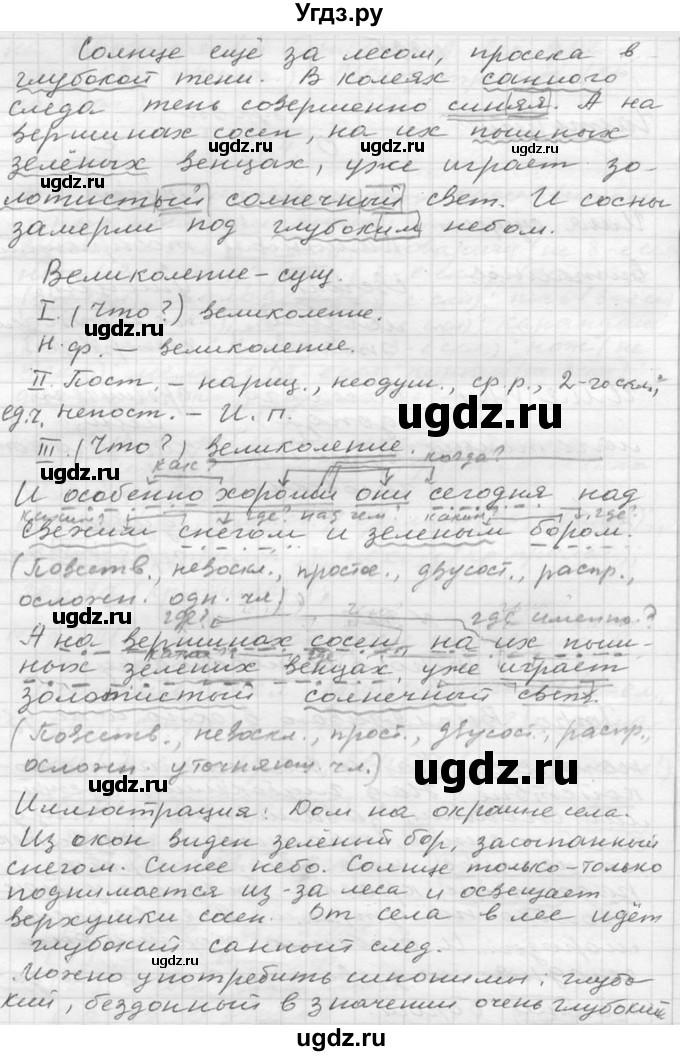 Угдз.ру
Солнце ещё за лесом, просека в
глубокой тени. В колеях санного
следа тень совершенно синяя. А на
вершинах сосен, на их пышных
зелёных венцах, уже играет зо-
лотистый солнечный свет. И сосны
замерли под глубоким небом.
Великолепие - сущ.
I. (Что?) великолепие.
Н.ф. — великолепие.
II. Пост. - нариц., неодуш., ср.р., 2-го скл.,
ед.ч. непост. - И.п.
III. (Что?) великолепие.
как? когда?
И особенно хороши они сегодня над
каким? где? над чем? каким? где?
свежим снегом и зелёным бором.
(Повеств., невоскл., простое., двусост., распр.,
осложн. одн. чл.)
где? где именно?
А на вершинах сосен, на их пыш-
ных зелёных венцах, уже играет
золотистый солнечный свет.
(Повеств., невоскл., прост., двусост., распр.,
осложн. уточняющ. чл.)
Иллюстрация: Дом на окраине села.
Из окон виден зелёный бор, засыпанный
снегом. Синее небо. Солнце только-только
поднимается из-за леса и освещает
верхушки сосен. От села в лес идёт
глубокий санный след.
Можно употребить синонимы: глубо-
кий, бездонный в значении очень глубокий
ugdz.ru ugdz.ru
ugdz.ru
ugdz.ru
ugdz.ru
ugdz.ru
ugdz.ru
ugdz.ru
ugdz.ru
ugdz.ru
ugdz.ru
ugdz.ru
ugdz.ru
ugdz.ru